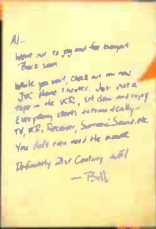 Al –
went out to jog and for bumpers
Back soon
While you wait, check out our new
JVC Home Theater. Just put a
tape in the VCR, sit down and enjoy
Everything starts automatically –
TV, VCR, Receiver, Surround Sound, etc.
You don't even need the remote
Definitely 21st Century stuff
— Bill